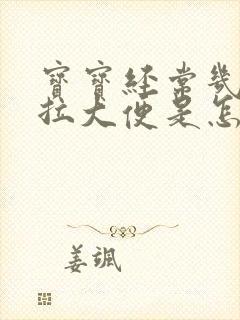 寶寶經常幾
拉大便是怎
姜颯